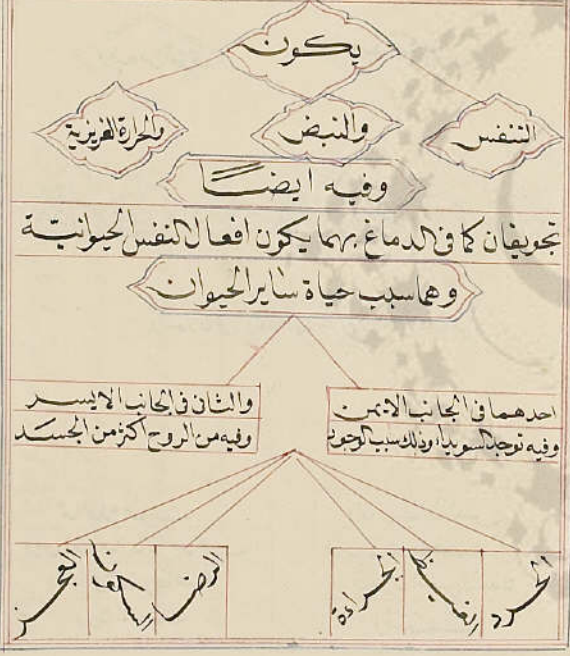 يكون
التنفس
والنبض
والحرارة الغريزية
وفيه ايضا
تجويفان كما فى الدماغ بهما يكون افعال النفس الحيوانية
وهما سبب حياة ساير الحيوان
احدهما فى الجانب الايمن
وفيه توجد السويدا وذلك سبب الوجود
والثانى فى الجانب الايسر
وفيه من الروح اكثر من الجسد
الحرد
الغيظ
الجراءة
الرضا
السكون
العجز